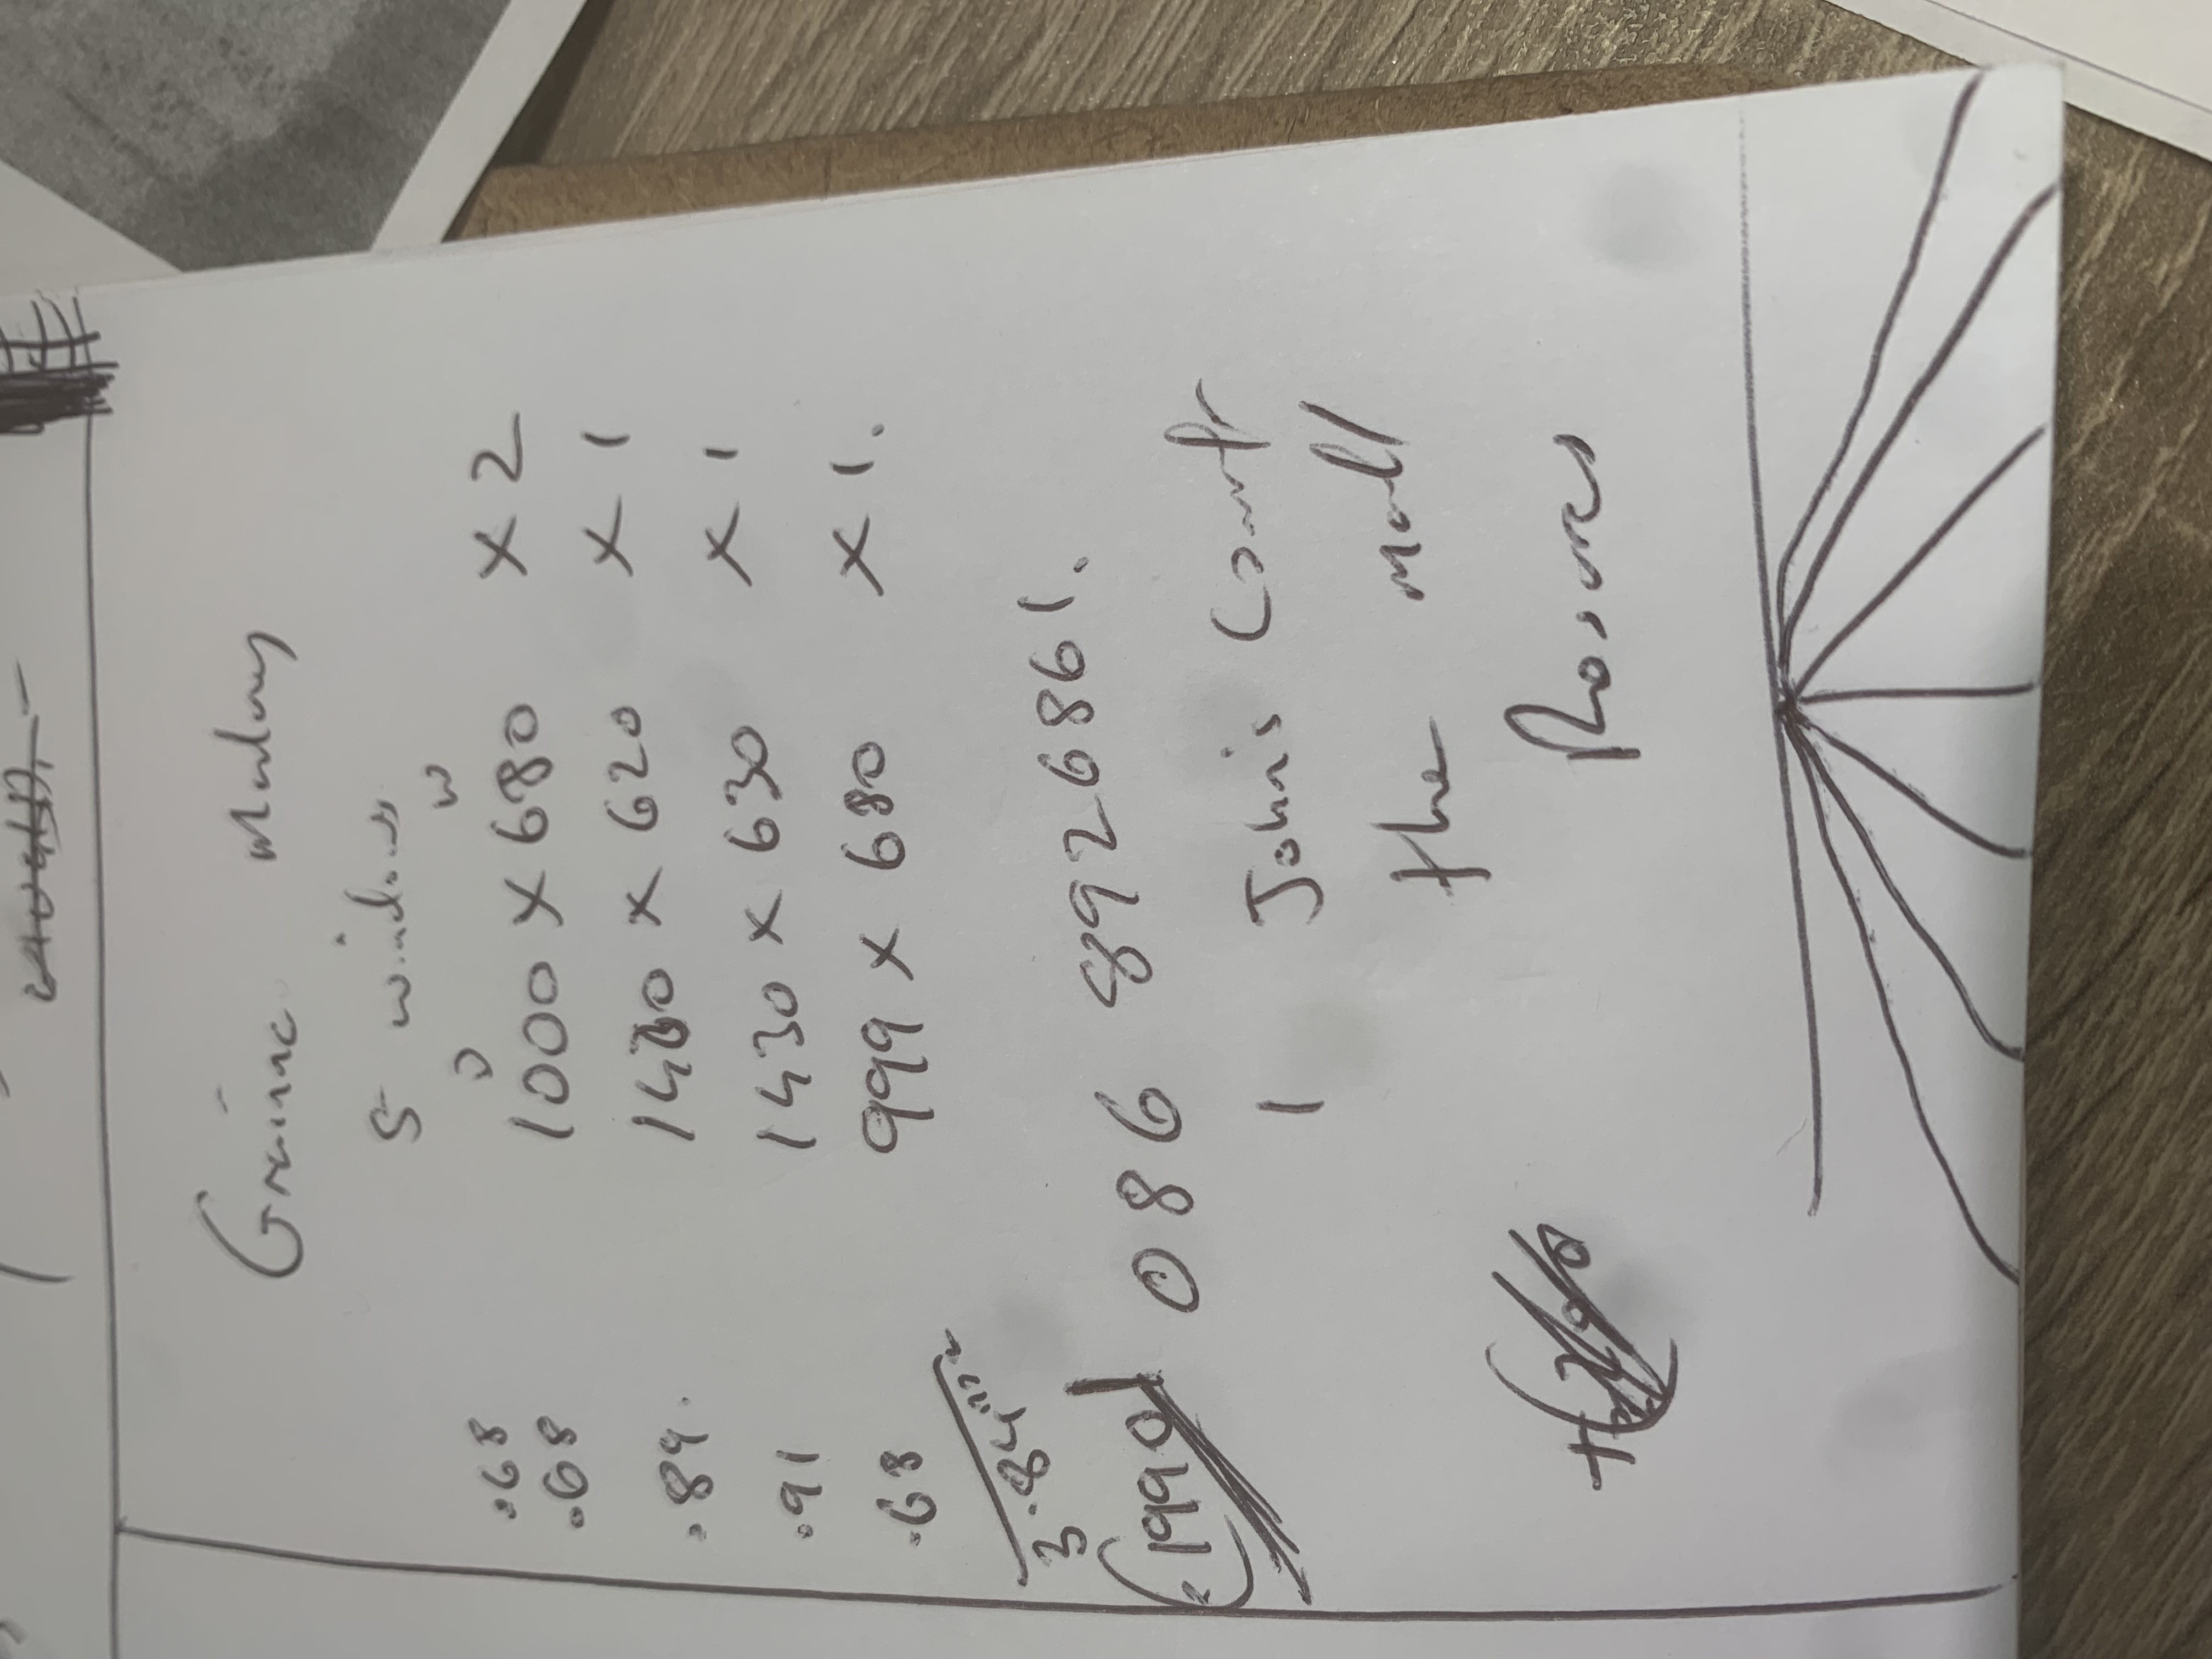 Grainne Mulvey
5 windows
D W
.68 1000 x 680 x 2
.68
.89. 1480 x 620 x 1
.91 1430 x 630 x 1
.68 999 x 680 x 1.
3.84m2
1990 086 8926861.
1 John's Court
the Mall